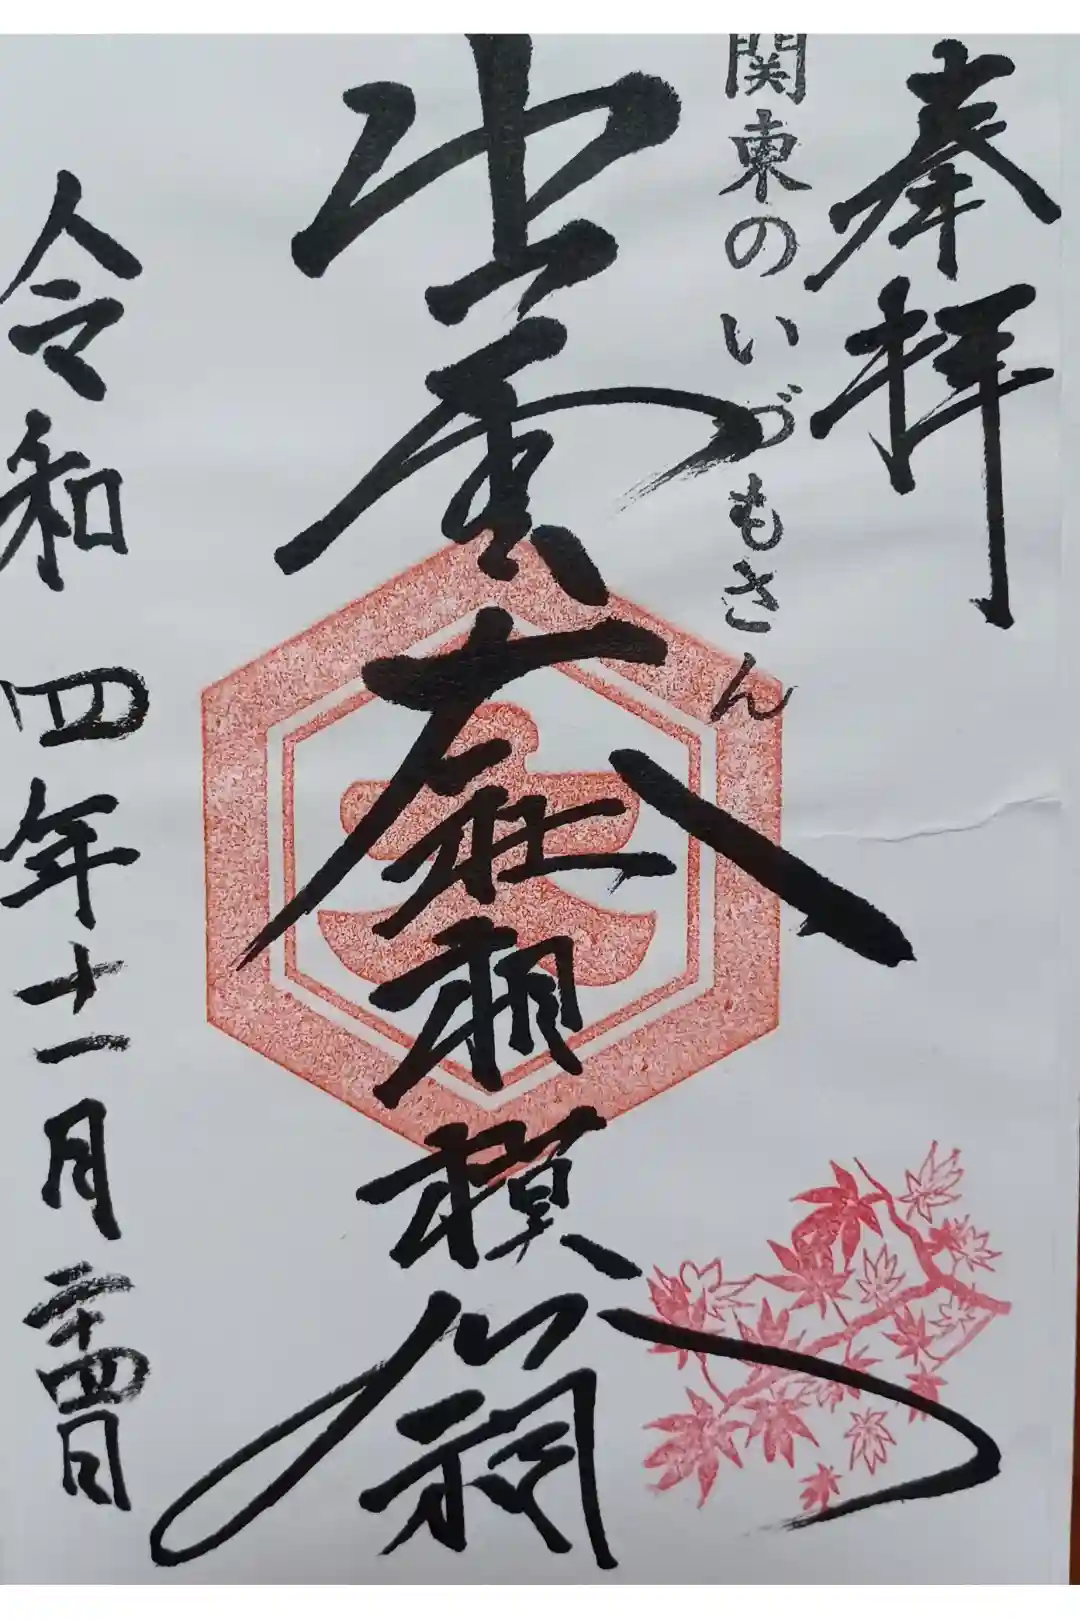 奉拝
関東のいづもさん
出雲大社相模分祠
令和四年十一月二十四日
大